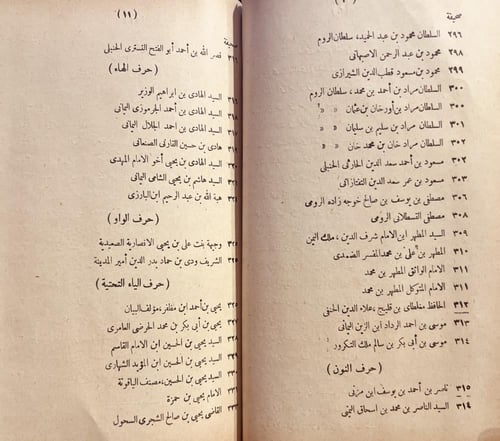 صحيفة
٢٩٦ السلطان محمود بن عبد الحميد، سلطان الروم
٢٩٨ محمود بن عبد الرحمن الاصبهانى
٢٩٩ محمود بن مسعود قطب الدين الشيرازى
٣٠٠ السلطان مراد بن أحمد بن محمد، سلطان الروم
٣٠٠ السلطان مراد بن أورخان بن عثمان » »
٣٠١ السلطان مراد بن سليم بن سليمان » »
٣٠٢ السلطان مراد خان بن محمد خان » »
٣٠٢ مسعود بن أحمد سعد الدين الحارثى الحنبلى
٣٠٣ مسعود بن عمر سعد الدين التفتازانى
٣٠٦ مصطفى بن يوسف بن صالح خوجه زاده الرومى
٣٠٨ مصطفى القسطلانى الرومى
٣٠٩ السيد المطهر ابن الامام شرف الدين، ملك اليمن
٣١٠ المطهر بن على بن محمد المفسر الضمدى
٣١١ الامام الواثق المطهر بن محمد
٣١١ الامام المتوكل المطهر بن محمد
٣١٢ الحافظ مغلطاى بن قليج، علاء الدين الحنفى
٣١٣ موسى بن احمد الرداد ابن الزين اليمانى
٣١٤ موسى بن أبى بكر بن سالم ملك التكرور
( حرف النون )
٣١٥ ناصر بن أحمد بن يوسف ابن مزنى
٣١٤ السيد الناصر بن محمد بن اسحاق اليمنى
( ١١ )
صحيفة
نصر الله بن احمد أبو الفتح التسترى الحنبلى
( حرف الهاء )
السيد الهادى بن ابراهيم الوزير
السيد الهادى بن أحمد الجرموزى اليمانى
السيد الهادى بن احمد الجلال اليمانى
هادى بن حسين القارنى الصنعانى
السيد الهادى بن يحيى أخو الامام المهدى
السيد هاشم بن يحيى الشامى اليمانى
هبة الله بن عبد الرحيم ابن البارزى
( حرف الواو )
وجيهة بنت على بن يحيى الانصارية الصعيدية
الشريف ودى بن حماد بدر الدين أمير المدينة
( حرف الياء التحتية )
يحيى بن أحمد ابن مظفر، مؤلف البيان
يحيى بن أبى بكر بن محمد الحرضى العامرى
السيد يحيى بن الحسين ابن الامام القاسم
السيد يحيى بن الحسين ابن المؤيد الشهارى
السيد يحيى بن الحسين، مصنف الياقوتة
الامام يحيى بن حمزة
القاضى يحيى بن صالح الشجرى السحولى